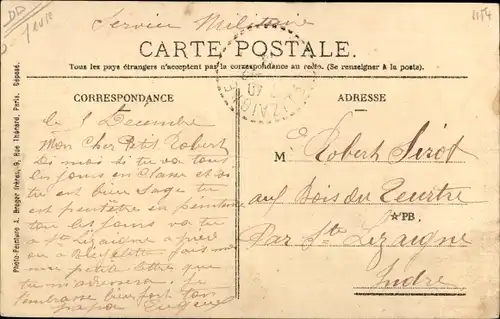 Service Militaire
CARTE POSTALE.
Tous les pays étrangers n'acceptent pas la correspondance au recto. (Se renseigner à la poste).
CORRESPONDANCE
le 8 Décembre
Mon Cher Petit Robert
Dis moi si tu vas tous
les jours en classe et si
tu est bien sage tu
est peutêtre en pénitence
tou les jours va tu
a Ste Lizaigne a pied
ou a Bicyclette fais moi
une petite lettre que
tu m'adressera. Je
t'embrasse bien fort ton
papa Eugène
ADRESSE
M. Robert Sirot
au Bois du Tertre
★PB.
Par Ste Lizaigne
Indre
Photo-Peinture A. Breger frères, 9, Rue Thénard, Paris. Déposé.